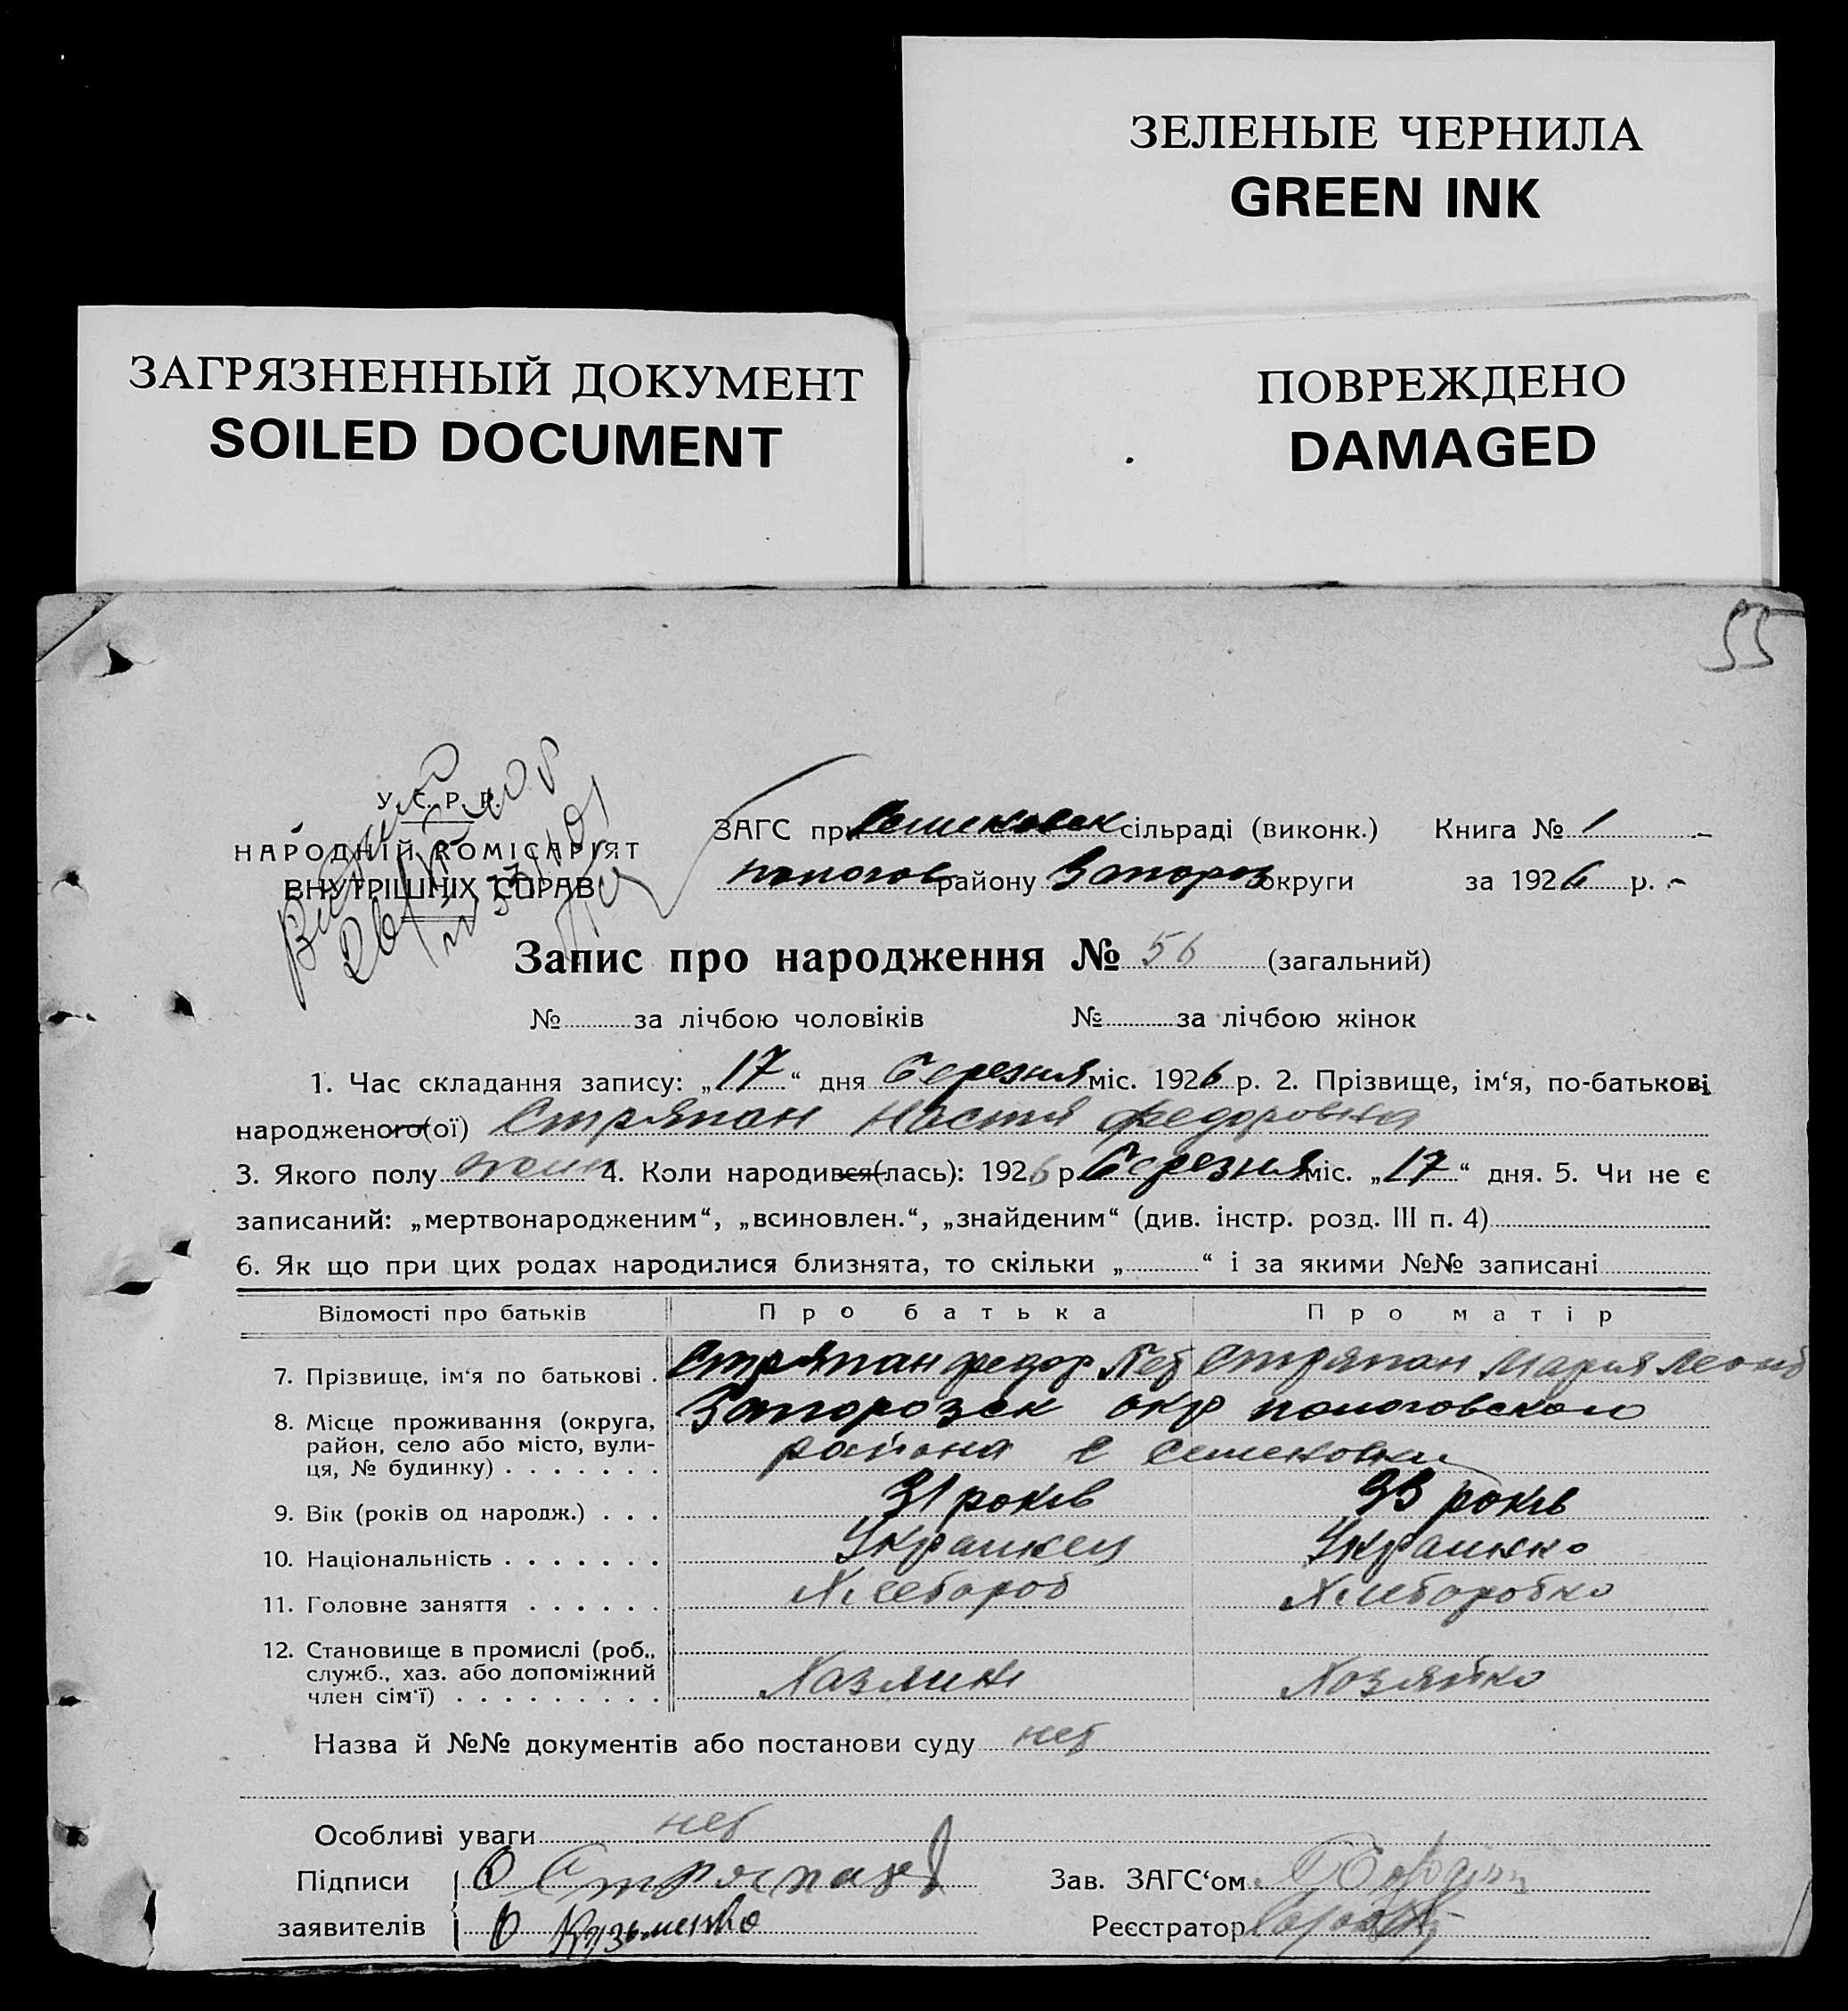 ЗЕЛЕНЫЕ ЧЕРНИЛА
GREEN INK
ЗАГРЯЗНЕННЫЙ ДОКУМЕНТ
SOILED DOCUMENT
ПОВРЕЖДЕНО
DAMAGED
55
У. С. Р. Р.
НАРОДНІЙ КОМІСАРІЯТ
ВНУТРІШНІХ СПРАВ
ЗАГС при Семеновск сільраді (виконк.) Книга № 1
пологов району Запороз округи за 1926 р.
Запис про народження № 56 (загальний)
№ за лічбою чоловіків № за лічбою жінок
1. Час складання запису: „17“ дня Березня міс. 1926 р. 2. Прізвище, ім‘я, по-батькові
народженого(ої) Стряпан Настя Федоровна
3. Якого полу жен 4. Коли народився(лась): 1926 р. Березня міс. „17“ дня. 5. Чи не є
записаний: „мертвонародженим“, „всиновлен.“, „знайденим“ (див. інстр. розд. III п. 4)
6. Як що при цих родах народилися близнята, то скільки „ “ і за якими №№ записані
Відомості про батьків Про батька Про матір
7. Прізвище, ім‘я по батькові . Стряпан Федор Пет Стряпан Мария Леонт
8. Місце проживання (округа, Запорозск окр пологовского
район, село або місто, вули- района с Семеновки
ця, № будинку) . . . . . . .
9. Вік (років од народж.) . . . 31 років 33 років
10. Національність . . . . . . . Украинец Украинка
11. Головне заняття . . . . . . Хлебороб Хлеборобка
12. Становище в промислі (роб.,
служб., хаз. або допоміжний Хазяин Хозяйка
член сім‘ї) . . . . . . . . .
Назва й №№ документів або постанови суду нет
Особливі уваги нет
Підписи Зав. ЗАГС‘ом
заявителів Кузьменко Реєстратор